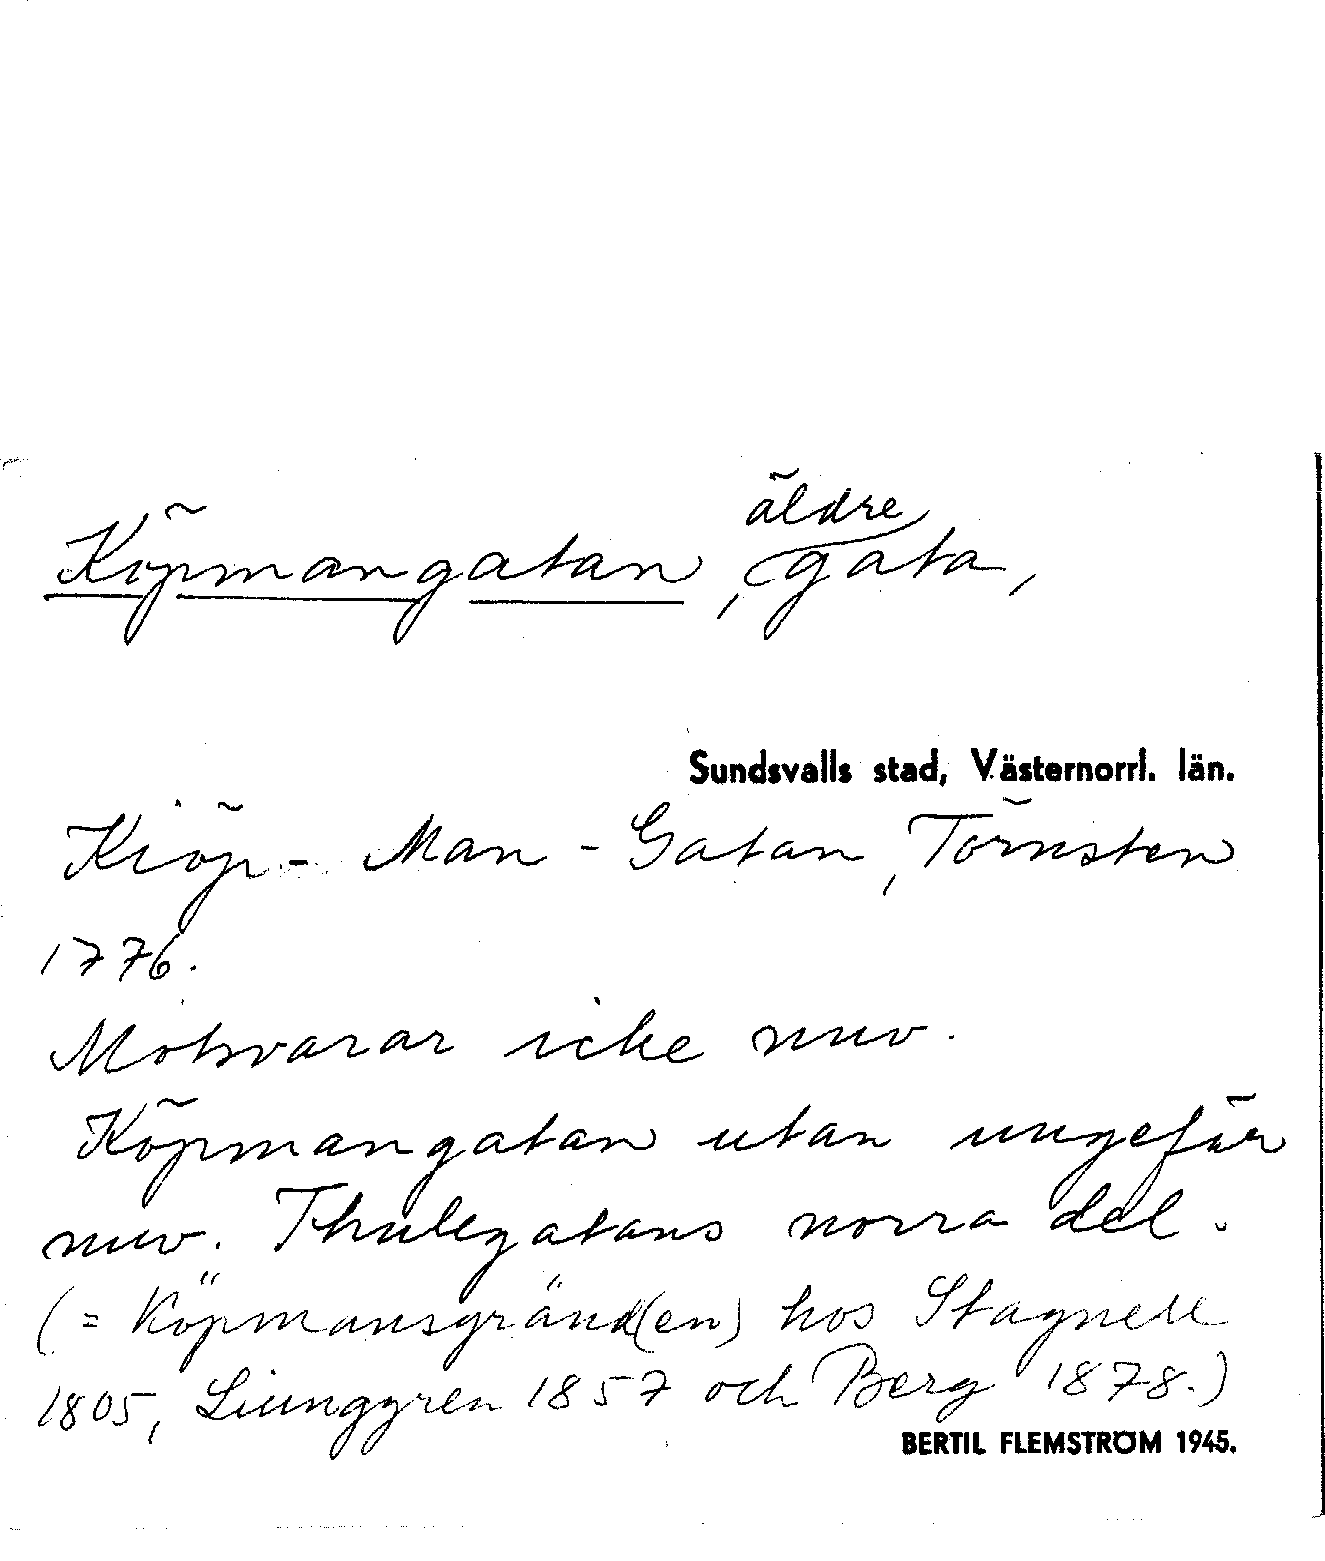 Köpmangatan, äldre gata,
Sundsvalls stad, Västernorrl. län.
Kiöp-Man-Gatan, Törnsten
1776.
Motsvarar icke nuv.
Köpmangatan utan ungefär
nuv. Thulegatans norra del.
(= Köpmansgränd(en) hos Stagnell
1805, Ljunggren 1857 och Berg 1878.)
BERTIL FLEMSTRÖM 1945.